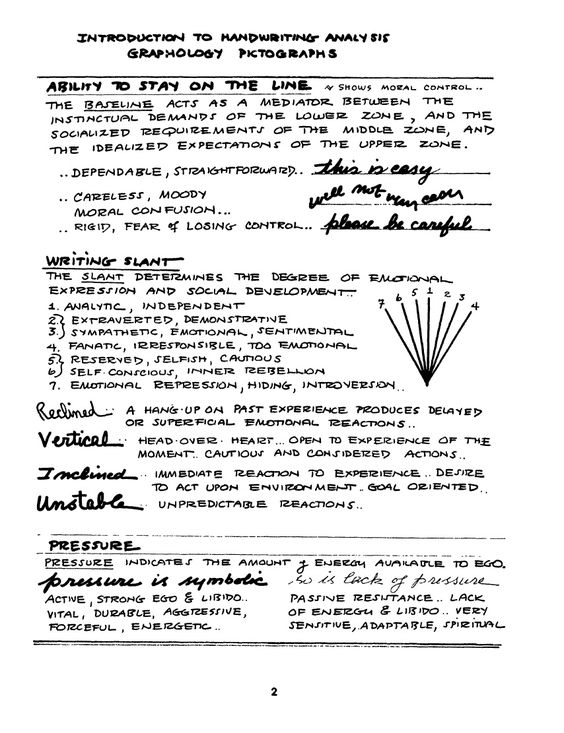 INTRODUCTION TO HANDWRITING ANALYSIS
GRAPHOLOGY PICTOGRAPHS
ABILITY TO STAY ON THE LINE ~ SHOWS MORAL CONTROL..
THE BASELINE ACTS AS A MEDIATOR BETWEEN THE
INSTINCTUAL DEMANDS OF THE LOWER ZONE, AND THE
SOCIALIZED REQUIREMENTS OF THE MIDDLE ZONE, AND
THE IDEALIZED EXPECTATIONS OF THE UPPER ZONE.
..DEPENDABLE, STRAIGHTFORWARD.. this is easy
..CARELESS, MOODY
MORAL CONFUSION... well not very easy
..RIGID, FEAR of LOSING CONTROL.. please be careful
WRITING SLANT
THE SLANT DETERMINES THE DEGREE OF EMOTIONAL
EXPRESSION AND SOCIAL DEVELOPMENT..
7 6 5 1 2 3 4
1. ANALYTIC, INDEPENDENT
2.} EXTRAVERTED, DEMONSTRATIVE
3.} SYMPATHETIC, EMOTIONAL, SENTIMENTAL
4. FANATIC, IRRESPONSIBLE, TOO EMOTIONAL
5.} RESERVED, SELFISH, CAUTIOUS
6.} SELF-CONSCIOUS, INNER REBELLION
7. EMOTIONAL REPRESSION, HIDING, INTROVERSION..
Reclined.. A HANG-UP ON PAST EXPERIENCE PRODUCES DELAYED
OR SUPERFICIAL EMOTIONAL REACTIONS..
Vertical.. HEAD·OVER·HEART... OPEN TO EXPERIENCE OF THE
MOMENT.. CAUTIOUS AND CONSIDERED ACTIONS..
Inclined.. IMMEDIATE REACTION TO EXPERIENCE.. DESIRE
TO ACT UPON ENVIRONMENT.. GOAL ORIENTED..
Unstable.. UNPREDICTABLE REACTIONS..
PRESSURE
PRESSURE INDICATES THE AMOUNT of ENERGY AVAILABLE TO EGO.
pressure is symbolic
ACTIVE, STRONG EGO & LIBIDO..
VITAL, DURABLE, AGGRESSIVE,
FORCEFUL, ENERGETIC..
so is lack of pressure
PASSIVE RESISTANCE.. LACK
OF ENERGY & LIBIDO.. VERY
SENSITIVE, ADAPTABLE, SPIRITUAL
2